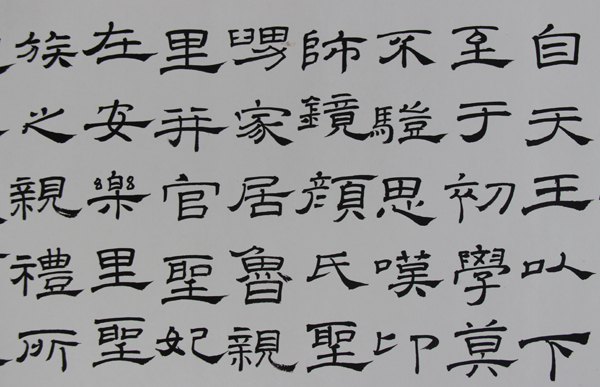 自天王以下
至于初學莫
不思嘆卬
師鏡顏氏聖
舅家居魯親
里并官聖妃
在安樂里聖
族之親禮所